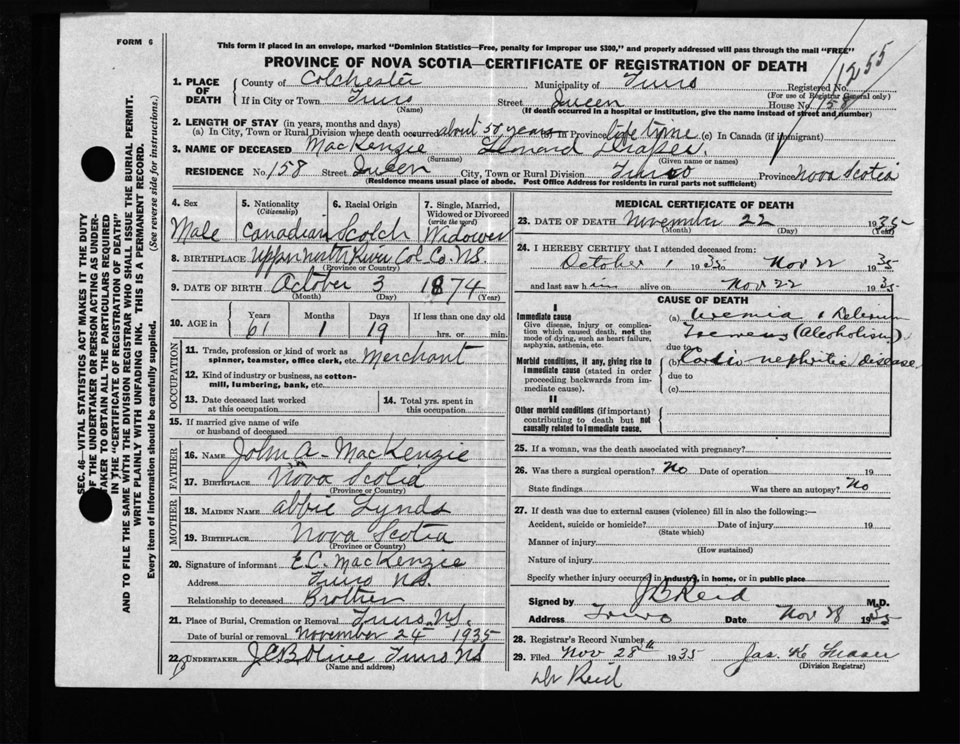 FORM 6
This form if placed in an envelope, marked "Dominion Statistics—Free, penalty for improper use $300," and properly addressed will pass through the mail "FREE"
PROVINCE OF NOVA SCOTIA—CERTIFICATE OF REGISTRATION OF DEATH
1255
1. PLACE OF DEATH
County of Colchester Municipality of Truro Registered No.
(For use of Registrar General only)
If in City or Town Truro Street Queen House No. 158
(Name) (If death occurred in a hospital or institution, give name instead of street and number)
2. LENGTH OF STAY (in years, months and days)
(a) In City, Town or Rural Division where death occurred about 50 years in Province life time (c) In Canada (if immigrant)
3. NAME OF DECEASED MacKenzie Leonard
(Surname) (Given name or names)
RESIDENCE No. 158 Street Queen City, Town or Rural Division Truro Province Nova Scotia
(Residence means usual place of abode. Post Office Address for residents in rural parts not sufficient)
4. Sex
Male
5. Nationality
(Citizenship)
Canadian
6. Racial Origin
Scotch
7. Single, Married, Widowed or Divorced
(write the word)
Widower
8. BIRTHPLACE Upper North River Col. Co. N.S.
(Province or Country)
9. DATE OF BIRTH October 3 1874
(Month) (Day) (Year)
10. AGE in
Years Months Days If less than one day old
61 1 19 hrs. or min.
OCCUPATION
11. Trade, profession or kind of work as spinner, teamster, office clerk, etc. Merchant
12. Kind of industry or business, as cotton-mill, lumbering, bank, etc.
13. Date deceased last worked at this occupation
14. Total yrs. spent in this occupation
15. If married give name of wife or husband of deceased
FATHER
16. NAME John A. MacKenzie
17. BIRTHPLACE Nova Scotia
(Province or Country)
MOTHER
18. MAIDEN NAME Abbie Lynds
19. BIRTHPLACE Nova Scotia
(Province or Country)
20. Signature of informant E.C. MacKenzie
Address Truro N.S.
Relationship to deceased Brother
21. Place of Burial, Cremation or Removal Truro, N.S.
Date of burial or removal November 24 1935
22. UNDERTAKER Truro NS
(Name and address)
MEDICAL CERTIFICATE OF DEATH
23. DATE OF DEATH November 22 1935
(Month) (Day) (Year)
24. I HEREBY CERTIFY that I attended deceased from:
October 1 1935 Nov 22 1935
and last saw him alive on Nov 22 1935
CAUSE OF DEATH
I
Immediate cause
Give disease, injury or complication which caused death, not the mode of dying, such as heart failure, asphyxia, asthenia, etc.
(a) Uremia & Delerium
Tremens (Alcoholism)
due to
Morbid conditions, if any, giving rise to immediate cause (stated in order proceeding backwards from immediate cause).
(b) Cardio nephritic disease
due to
(c)
II
Other morbid conditions (if important) contributing to death but not causally related to immediate cause.
25. If a woman, was the death associated with pregnancy?
26. Was there a surgical operation? No Date of operation 19
State findings Was there an autopsy? No
27. If death was due to external causes (violence) fill in also the following:—
Accident, suicide or homicide? Date of injury 19
(State which)
Manner of injury
(How sustained)
Nature of injury
Specify whether injury occurred in industry, in home, or in public place
Signed by J B Reid M.D.
Address Truro Date Nov 28 1935
28. Registrar's Record Number
29. Filed Nov 28th 1935 Jas. K. Fraser
(Division Registrar)
Dr Reid
SEC. 46—VITAL STATISTICS ACT MAKES IT THE DUTY
OF THE UNDERTAKER OR PERSON ACTING AS UNDER-
TAKER TO OBTAIN ALL THE PARTICULARS REQUIRED
IN THE "CERTIFICATE OF REGISTRATION OF DEATH"
AND TO FILE THE SAME WITH THE DIVISION REGISTRAR WHO SHALL ISSUE THE BURIAL PERMIT.
WRITE PLAINLY WITH UNFADING INK. THIS IS A PERMANENT RECORD.
Every item of information should be carefully supplied. (See reverse side for instructions.)